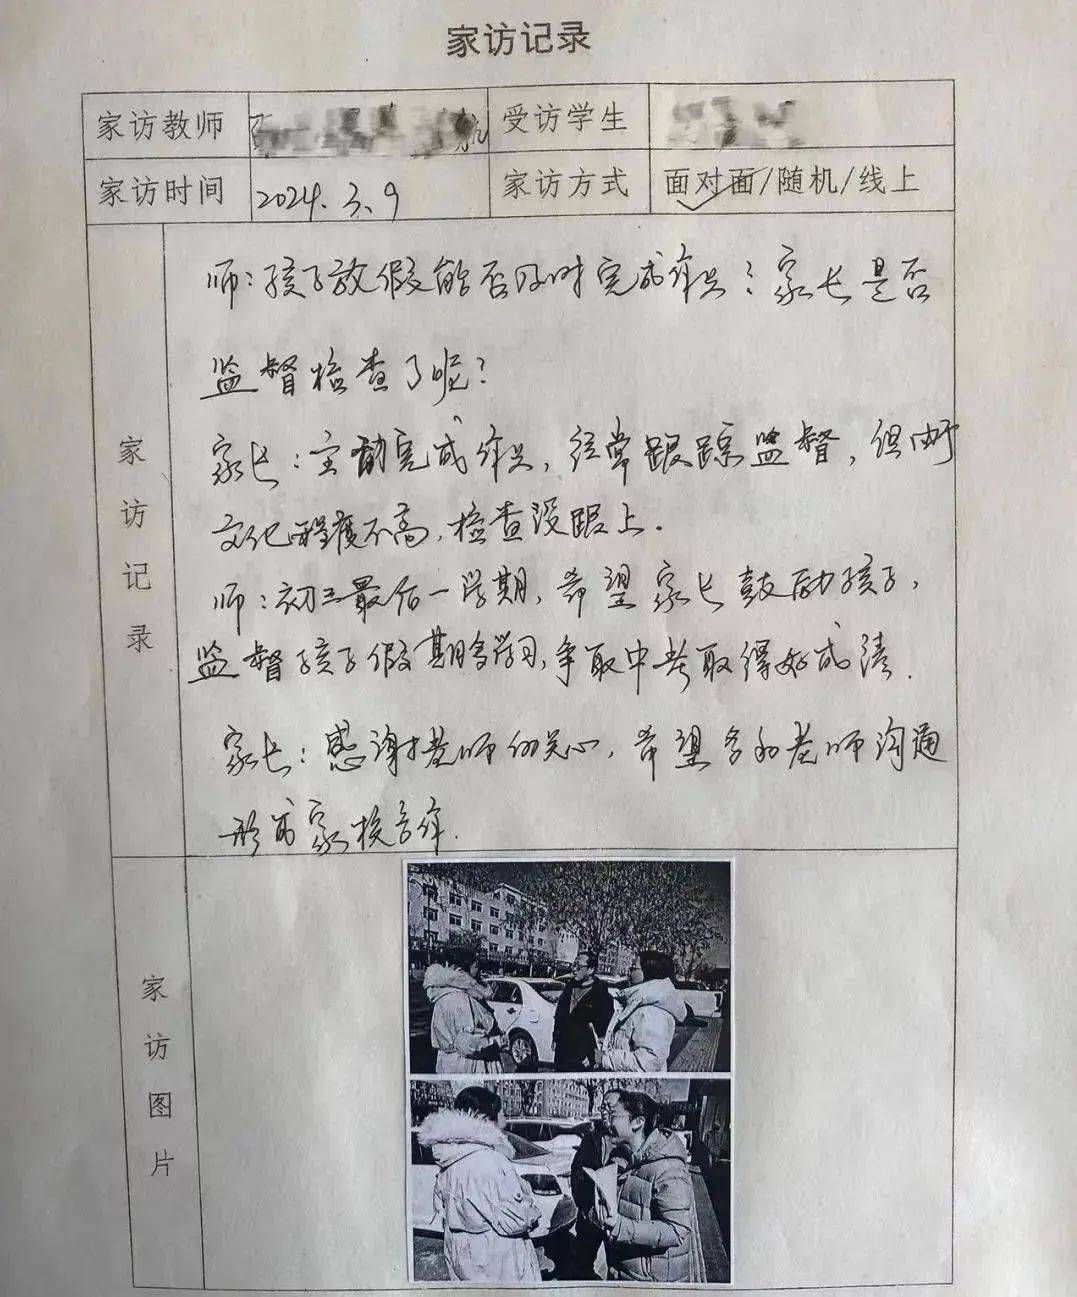 家访记录
家访教师
受访学生
家访时间 2024.3.9 家访方式 面对面/随机/线上
家访记录
师：孩子放假能否及时完成作业？家长是否
监督检查了呢？
家长：主动完成作业，经常跟踪监督，但由于
文化程度不高，检查没跟上.
师：初三最后一学期，希望家长鼓励孩子，
监督孩子假期多学习，争取中考取得好成绩.
家长：感谢老师的关心，希望多和老师沟通
形成家校合作.
家访图片